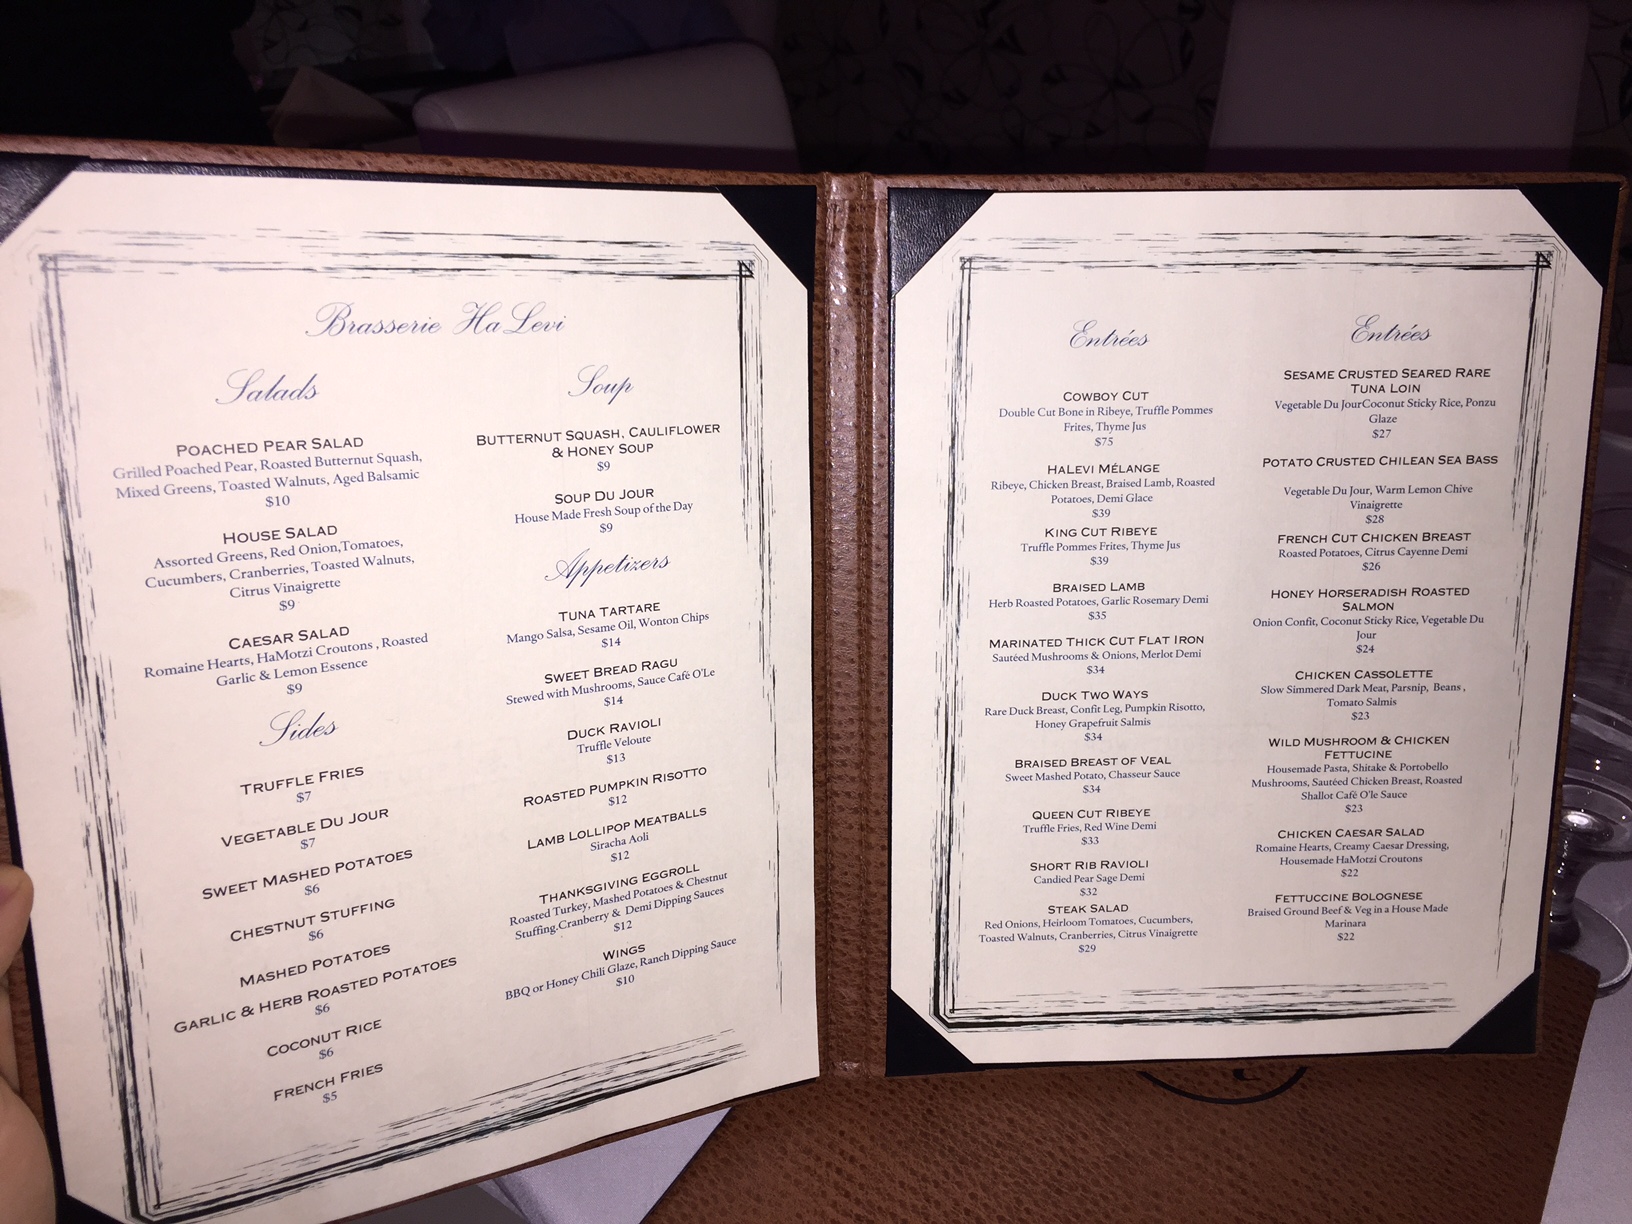 Brasserie HaLevi
Salads
POACHED PEAR SALAD
Grilled Poached Pear, Roasted Butternut Squash,
Mixed Greens, Toasted Walnuts, Aged Balsamic
$10
HOUSE SALAD
Assorted Greens, Red Onion,Tomatoes,
Cucumbers, Cranberries, Toasted Walnuts,
Citrus Vinaigrette
$9
CAESAR SALAD
Romaine Hearts, HaMotzi Croutons , Roasted
Garlic & Lemon Essence
$9
Sides
TRUFFLE FRIES
$7
VEGETABLE DU JOUR
$7
SWEET MASHED POTATOES
$6
CHESTNUT STUFFING
$6
MASHED POTATOES
GARLIC & HERB ROASTED POTATOES
$6
COCONUT RICE
$6
FRENCH FRIES
$5
Soup
BUTTERNUT SQUASH, CAULIFLOWER
& HONEY SOUP
$9
SOUP DU JOUR
House Made Fresh Soup of the Day
$9
Appetizers
TUNA TARTARE
Mango Salsa, Sesame Oil, Wonton Chips
$14
SWEET BREAD RAGU
Stewed with Mushrooms, Sauce Café O'Le
$14
DUCK RAVIOLI
Truffle Veloute
$13
ROASTED PUMPKIN RISOTTO
$12
LAMB LOLLIPOP MEATBALLS
Siracha Aoli
$12
THANKSGIVING EGGROLL
Roasted Turkey, Mashed Potatoes & Chestnut
Stuffing.Cranberry & Demi Dipping Sauces
$12
WINGS
BBQ or Honey Chili Glaze, Ranch Dipping Sauce
$10
Entrées
COWBOY CUT
Double Cut Bone in Ribeye, Truffle Pommes
Frites, Thyme Jus
$75
HALEVI MÉLANGE
Ribeye, Chicken Breast, Braised Lamb, Roasted
Potatoes, Demi Glace
$39
KING CUT RIBEYE
Truffle Pommes Frites, Thyme Jus
$39
BRAISED LAMB
Herb Roasted Potatoes, Garlic Rosemary Demi
$35
MARINATED THICK CUT FLAT IRON
Sautéed Mushrooms & Onions, Merlot Demi
$34
DUCK TWO WAYS
Rare Duck Breast, Confit Leg, Pumpkin Risotto,
Honey Grapefruit Salmis
$34
BRAISED BREAST OF VEAL
Sweet Mashed Potato, Chasseur Sauce
$34
QUEEN CUT RIBEYE
Truffle Fries, Red Wine Demi
$33
SHORT RIB RAVIOLI
Candied Pear Sage Demi
$32
STEAK SALAD
Red Onions, Heirloom Tomatoes, Cucumbers,
Toasted Walnuts, Cranberries, Citrus Vinaigrette
$29
Entrées
SESAME CRUSTED SEARED RARE
TUNA LOIN
Vegetable Du JourCoconut Sticky Rice, Ponzu
Glaze
$27
POTATO CRUSTED CHILEAN SEA BASS
Vegetable Du Jour, Warm Lemon Chive
Vinaigrette
$28
FRENCH CUT CHICKEN BREAST
Roasted Potatoes, Citrus Cayenne Demi
$26
HONEY HORSERADISH ROASTED
SALMON
Onion Confit, Coconut Sticky Rice, Vegetable Du
Jour
$24
CHICKEN CASSOLETTE
Slow Simmered Dark Meat, Parsnip, Beans ,
Tomato Salmis
$23
WILD MUSHROOM & CHICKEN
FETTUCINE
Housemade Pasta, Shitake & Portobello
Mushrooms, Sautéed Chicken Breast, Roasted
Shallot Café O'le Sauce
$23
CHICKEN CAESAR SALAD
Romaine Hearts, Creamy Caesar Dressing,
Housemade HaMotzi Croutons
$22
FETTUCCINE BOLOGNESE
Braised Ground Beef & Veg in a House Made
Marinara
$22